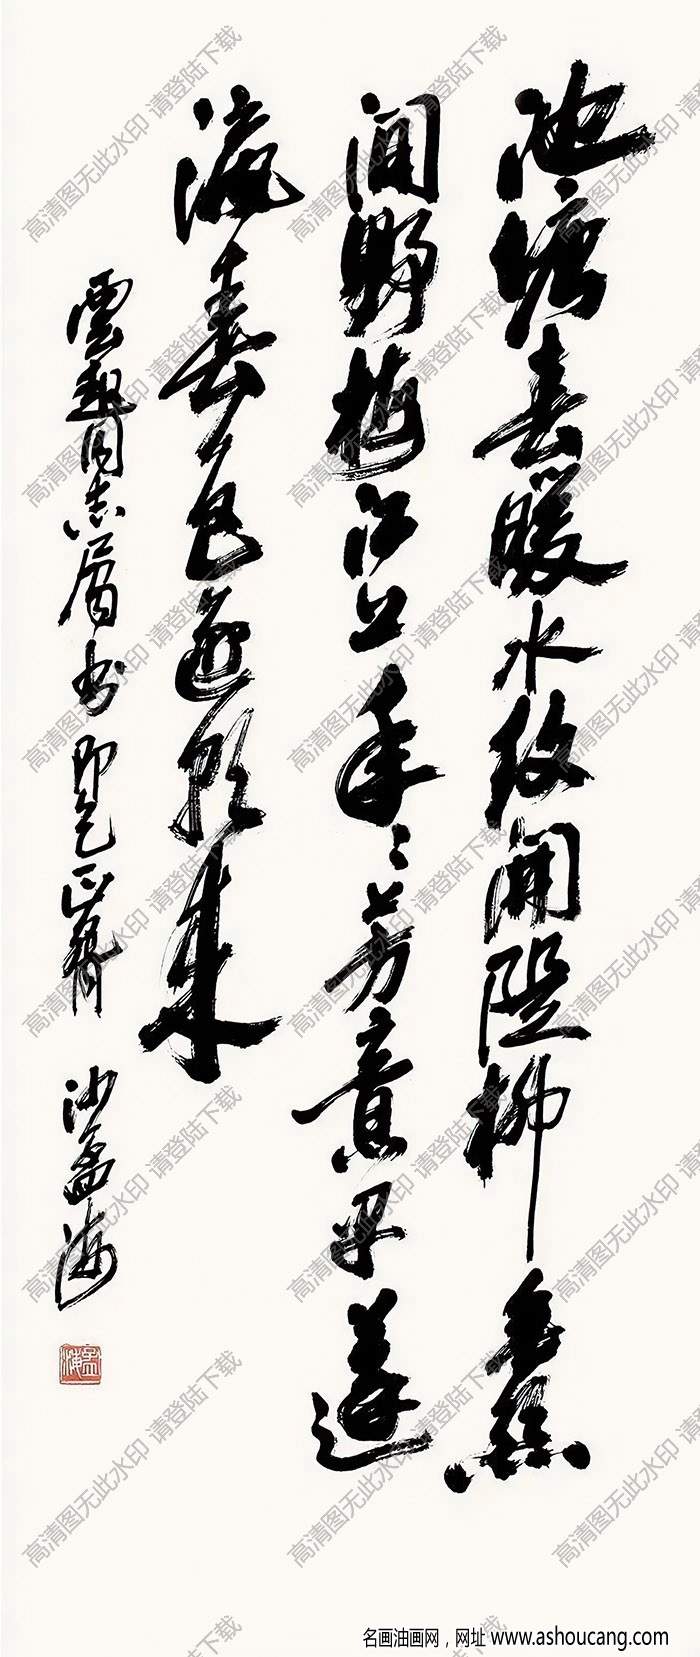 池塘春暖水紋開堤柳垂絲
間野梅江上年〻芳意早蓬
瀛春色逐潮來
雲同志屬書即乞正 沙孟海
孟海
高清图无此水印 请登陆下载
名画油画网，网址 www.ashoucang.com